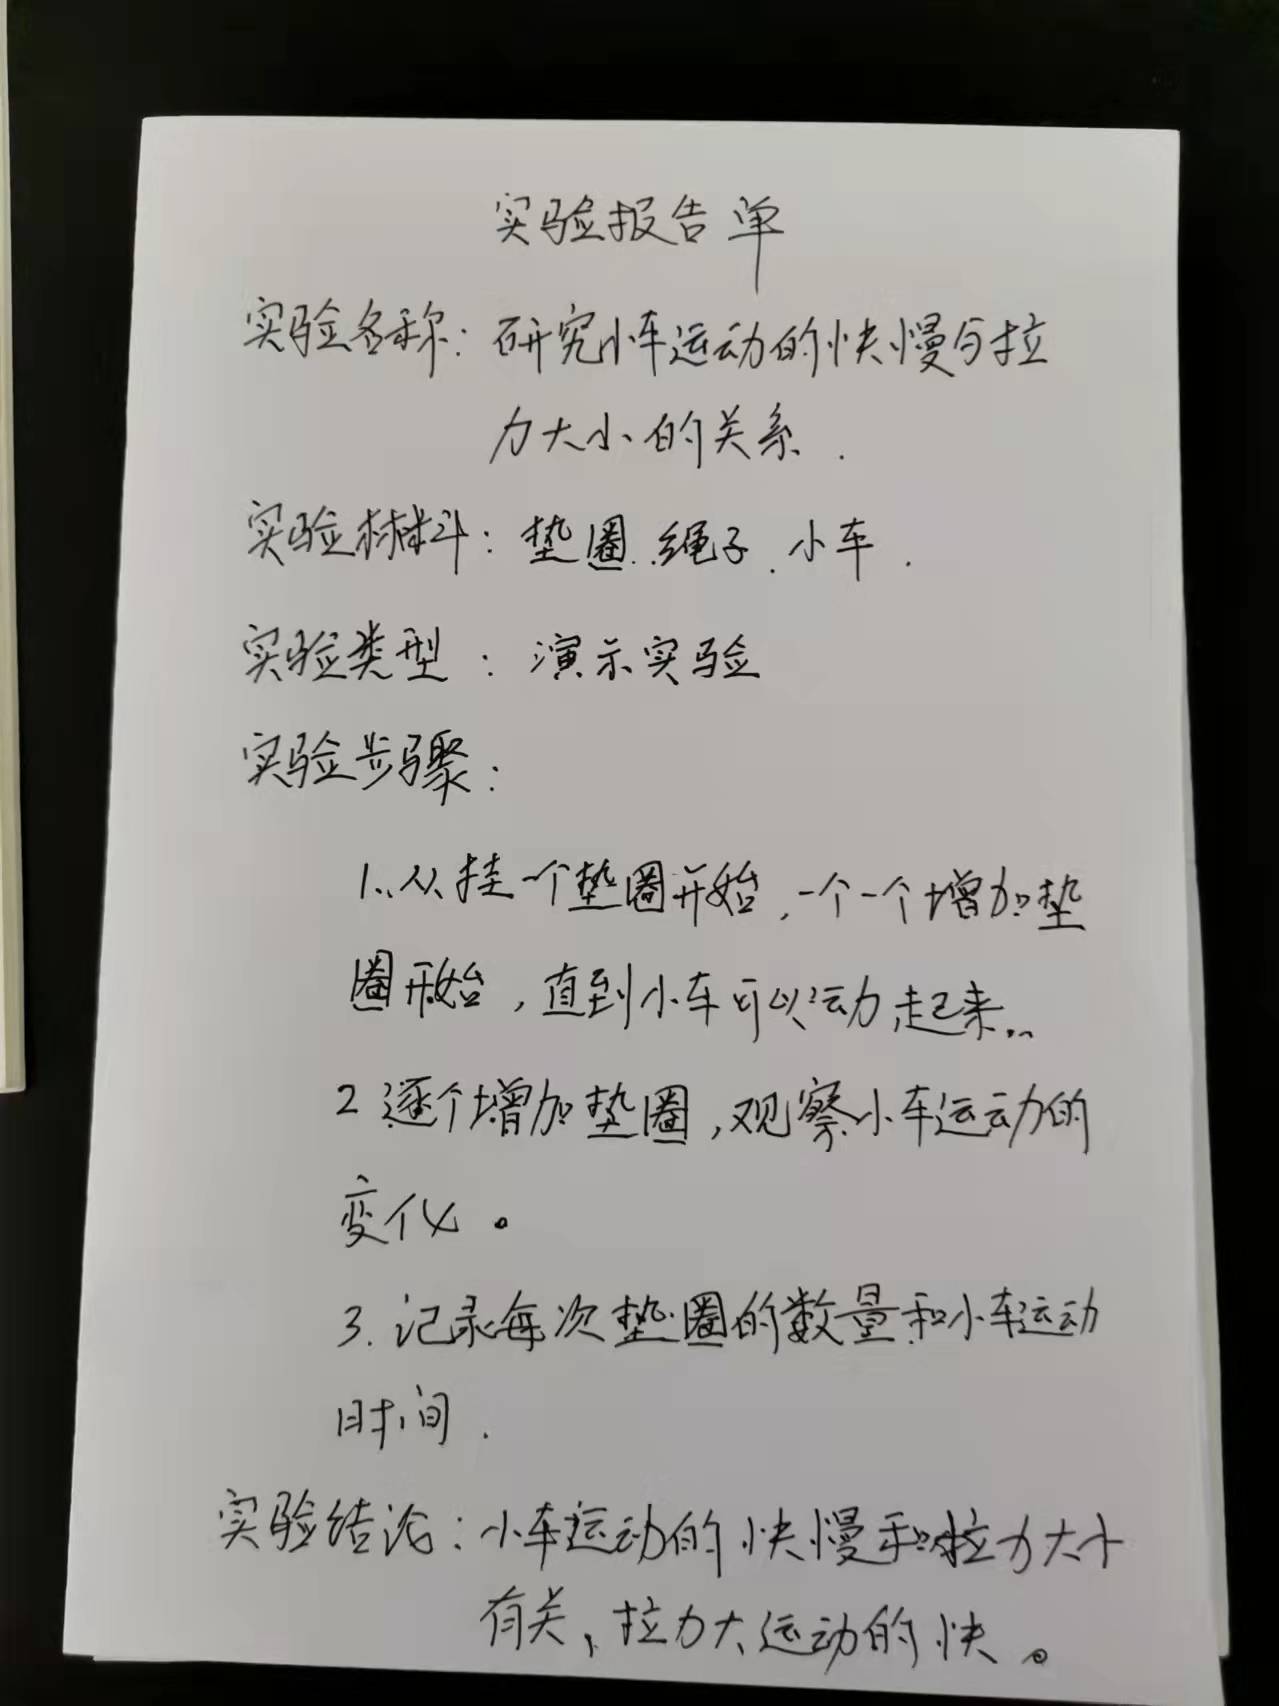 实验报告单
实验名称：研究小车运动的快慢与拉
力大小的关系．
实验材料：垫圈．绳子．小车．
实验类型：演示实验
实验步骤：
1．从挂一个垫圈开始，一个一个增加垫
圈开始，直到小车可以运动起来．
2 逐个增加垫圈，观察小车运动的
变化。
3．记录每次垫圈的数量和小车运动
时间．
实验结论：小车运动的快慢和拉力大小
有关、拉力大运动的快。